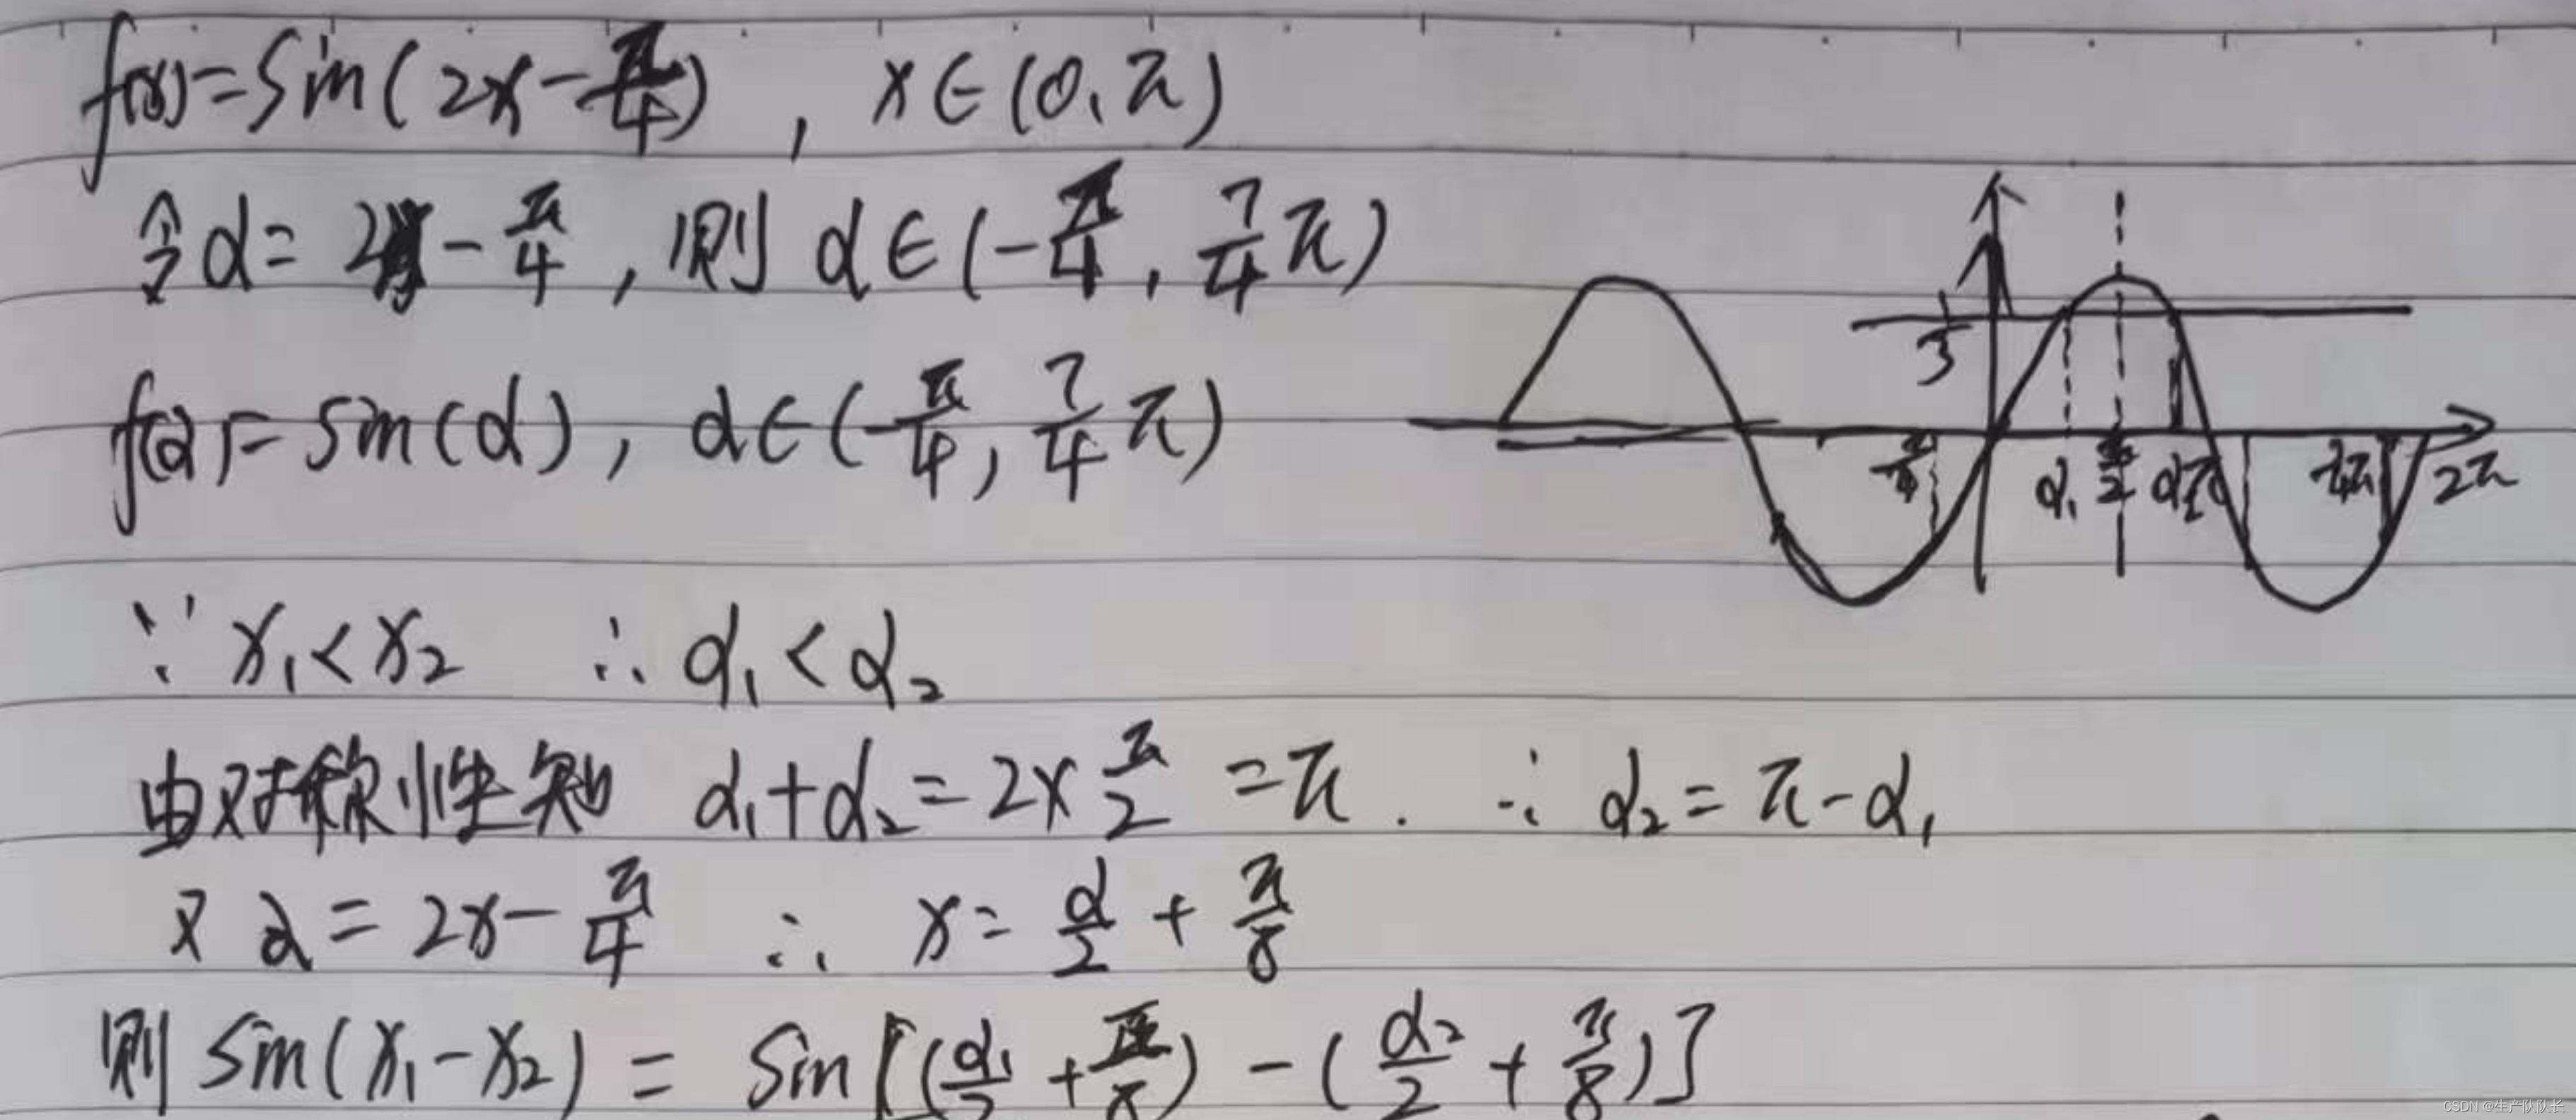 f(x)=sin(2x-π/4), x∈(0,π)
令α=2x-π/4,则 α∈(-π/4, 7/4π)
f(α)=sin(α), α∈(-π/4, 7/4π)
1/3
-π/4 α₁ π/2 α₂ π 7/4π 2π
∵ x₁<x₂ ∴ α₁<α₂
由对称性知 α₁+α₂=2×π/2=π. ∴ α₂=π-α₁
又 α=2x-π/4 ∴ x=α/2+π/8
则 sin(x₁-x₂) = sin[(α₁/2+π/8)-(α₂/2+π/8)]
CSDN @生产队队长